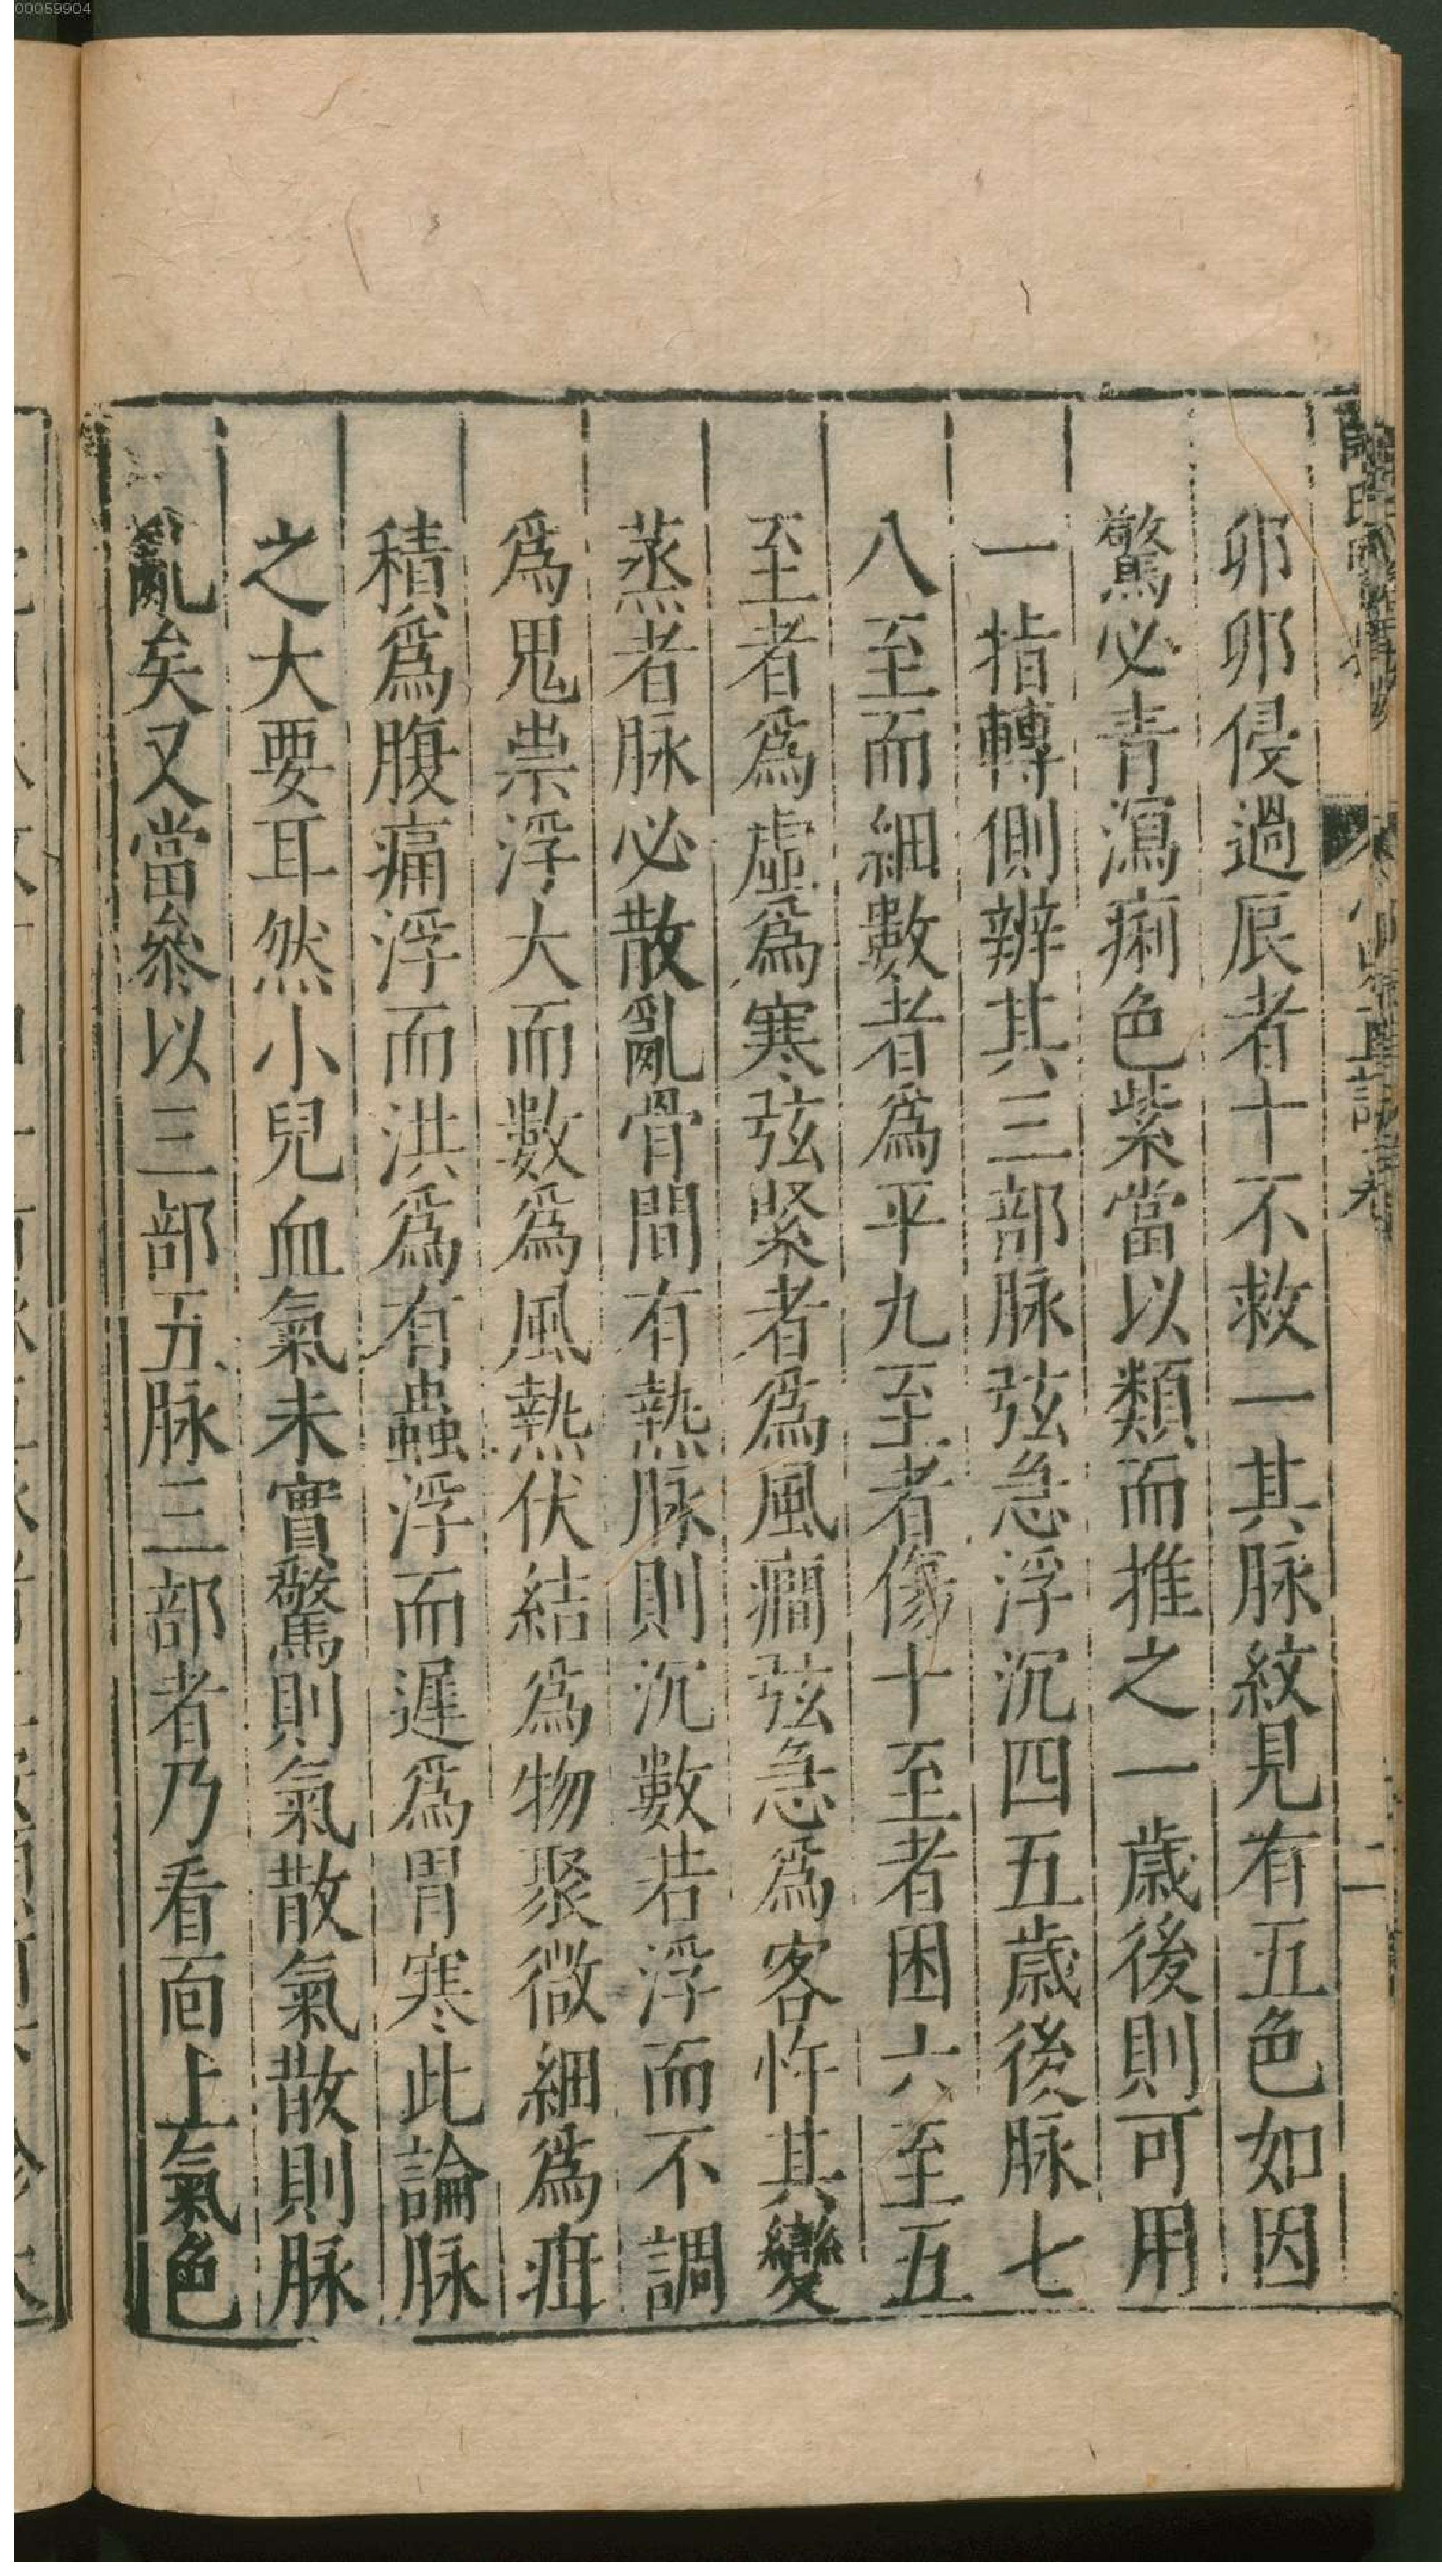 00059904
卯卯侵過辰者十不救一其脉紋見有五色如因
驚必青瀉痢色紫當以類而推之一歲後則可用
一指轉側辨其三部脉弦急浮沉四五歲後脉七
八至而細數者爲平九至者傷十至者困六至五
至者爲虛爲寒弦緊者爲風癎弦急爲客忤其變
蒸者脉必散亂骨間有熱脉則沉數若浮而不調
爲鬼祟浮大而數爲風熱伏結爲物聚微細爲疳
積爲腹痛浮而洪爲有蟲浮而遲爲胃寒此論脉
之大要耳然小兒血氣未實驚則氣散氣散則脉
亂矣又當參以三部五脉三部者乃看面上氣色